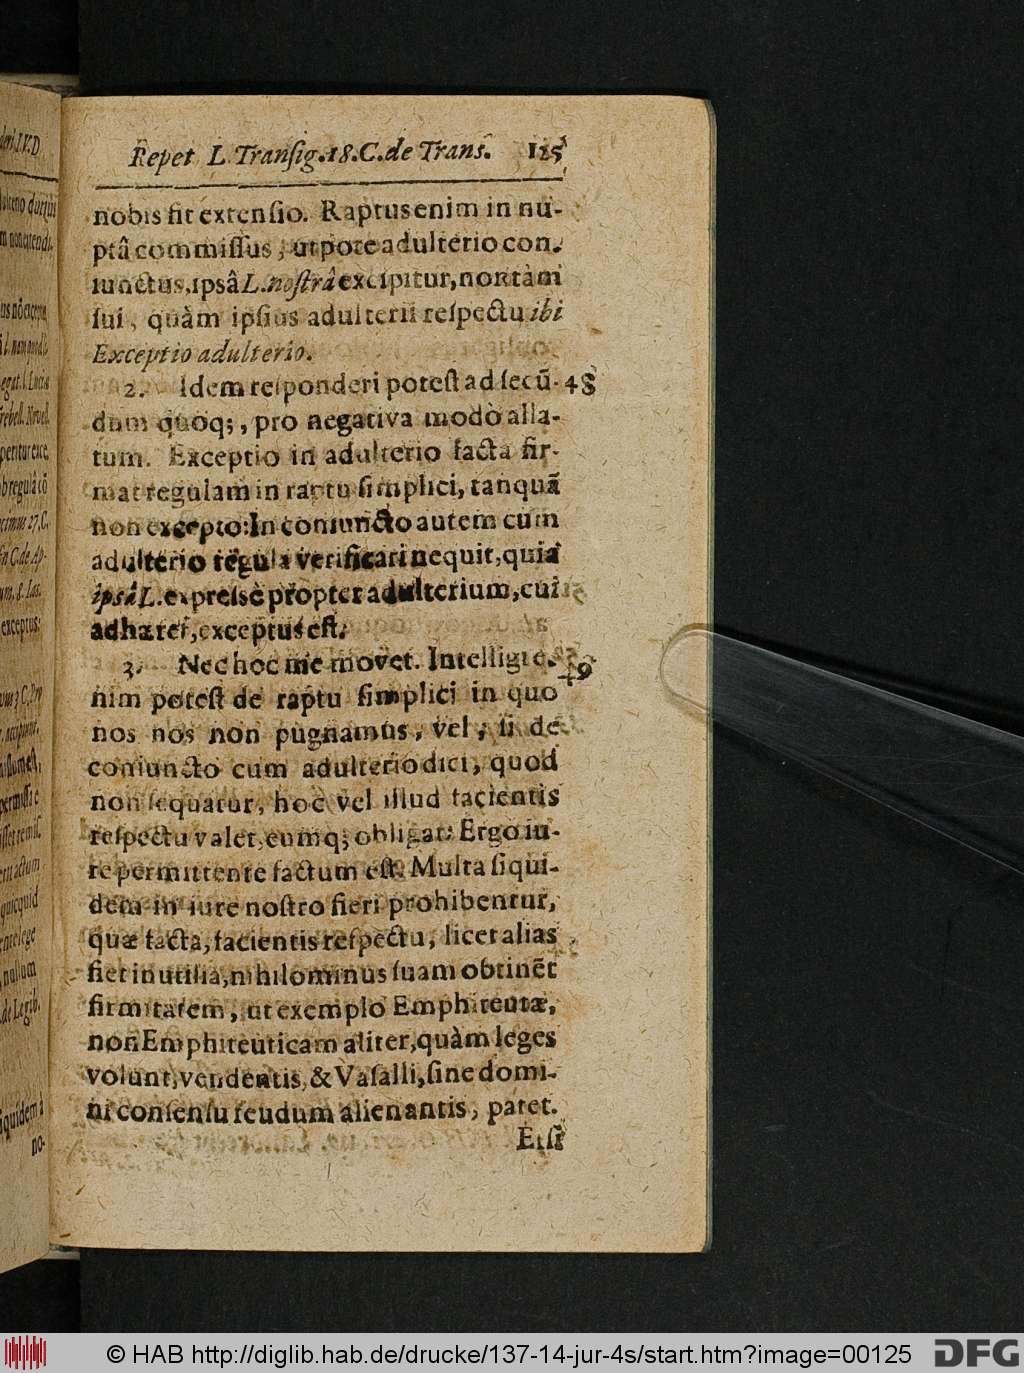 Repet L Tranſig. 18. C. de Trans. 125
nobis fit extenſio. Raptus enim in nu-
ptâ commiſſus, utpote adulterio con-
iunctus, ipsâ L. noſtrâ excipitur, non tàm
ſui, quàm ipſius adulterii reſpectu ibi
Exceptio adulterio.
2. Idem reſponderi poteſt ad ſecũ- 48
dum quoq;, pro negativa modò alla-
tum. Exceptio in adulterio facta fir-
mat regulam in raptu ſimplici, tanquã
non excepto: In coniuncto autem cum
adulterio regula verificari nequit, quia
ipsâ L. expreſsè propter adulterium, cui
adhæret, exceptus eſt.
3. Nec hoc me movet. Intelligi e- 49
nim poteſt de raptu ſimplici in quo
nos nos non pugnamus, vel, ſi de
coniuncto cum adulterio dici, quod
non ſequatur, hoc vel illud facientis
reſpectu valet, eumq; obligat: Ergo iu-
re permittente factum eſt. Multa ſiqui-
dem in iure noſtro fieri prohibentur,
quæ facta, facientis reſpectu, licet alias
fiet inutilia, nihilominus ſuam obtinẽt
firmitatem, ut exemplo Emphiteutæ,
non Emphiteuticam aliter, quàm leges
volunt, vendentis, & Vaſalli, ſine domi-
ni conſenſu feudum alienantis, patet.
Etſi
© HAB http://diglib.hab.de/drucke/137-14-jur-4s/start.htm?image=00125
DFG